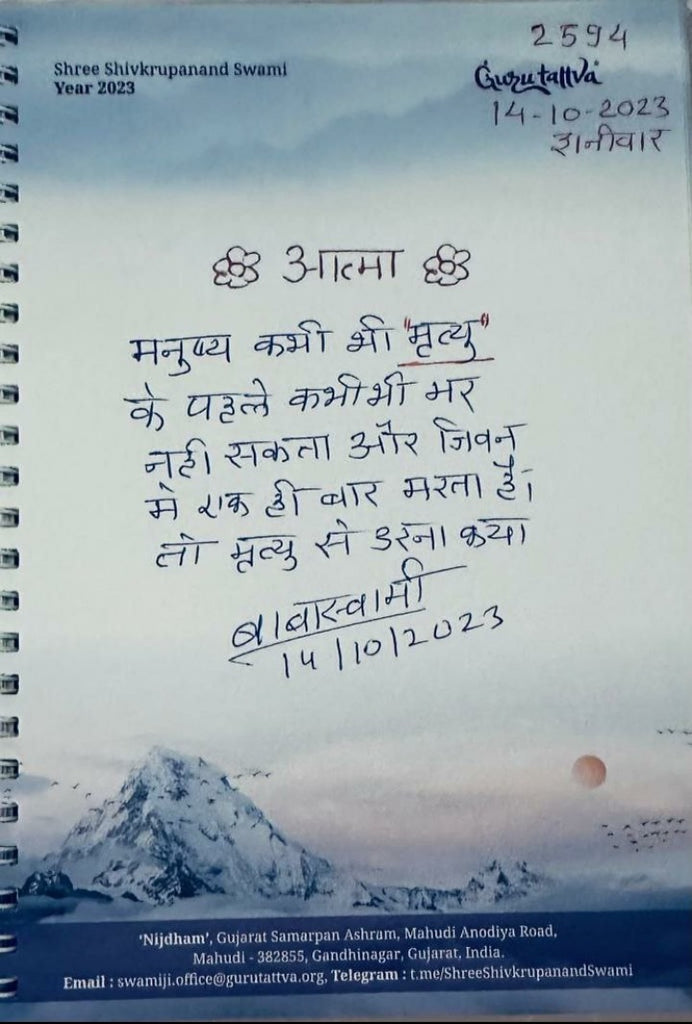 2594
Shree Shivkrupanand Swami
Year 2023
Gurutattva
14-10-2023
शनीवार
आत्मा
मनुष्य कभी भी "मृत्यु"
के पहले कभीभी मर
नही सकता और जिवन
मे एक ही बार मरता है।
तो मृत्यु से डरना क्या।
बाबास्वामी
14/10/2023
'Nijdham', Gujarat Samarpan Ashram, Mahudi Anodiya Road,
Mahudi - 382855, Gandhinagar, Gujarat, India.
Email : swamiji.office@gurutattva.org, Telegram : t.me/ShreeShivkrupanandSwami